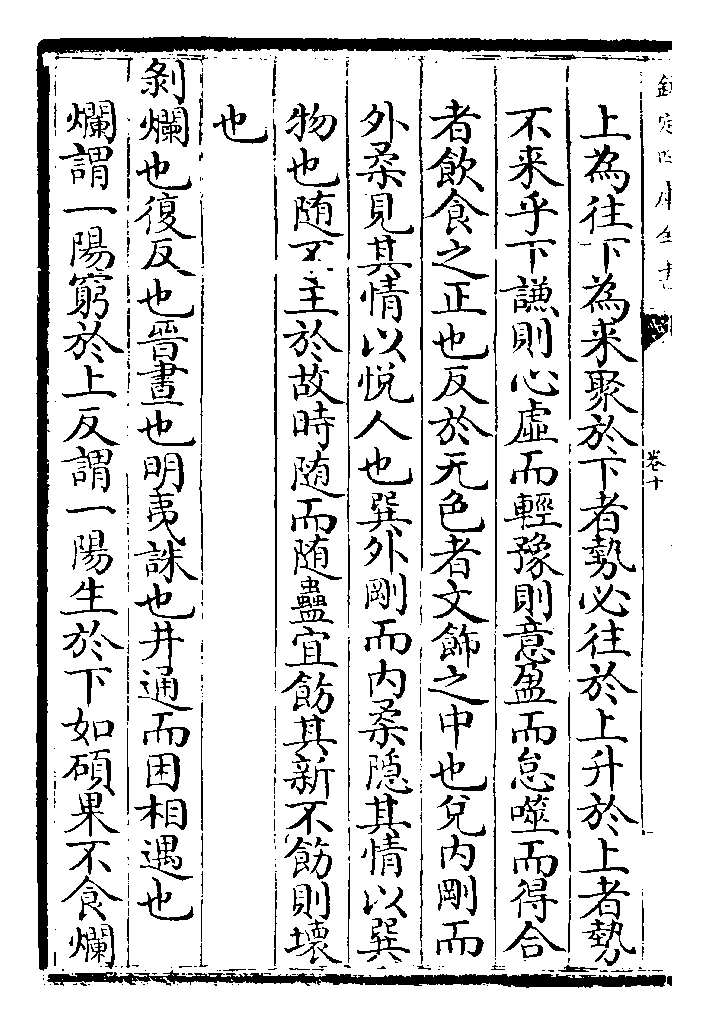 欽定四庫全書
卷十
上為往下為来聚於下者勢必往於上升於上者勢
不来乎下謙則心虛而輕豫則意盈而怠噬而得合
者飲食之正也反於无色者文飾之中也兌内剛而
外柔見其情以悅人也巽外剛而内柔隱其情以巽
物也随不主於故時随而随蠱宜飭其新不飭則壞
也
剝爛也復反也晉晝也明夷誅也井通而困相遇也
爛謂一陽窮於上反謂一陽生於下如碩果不食爛